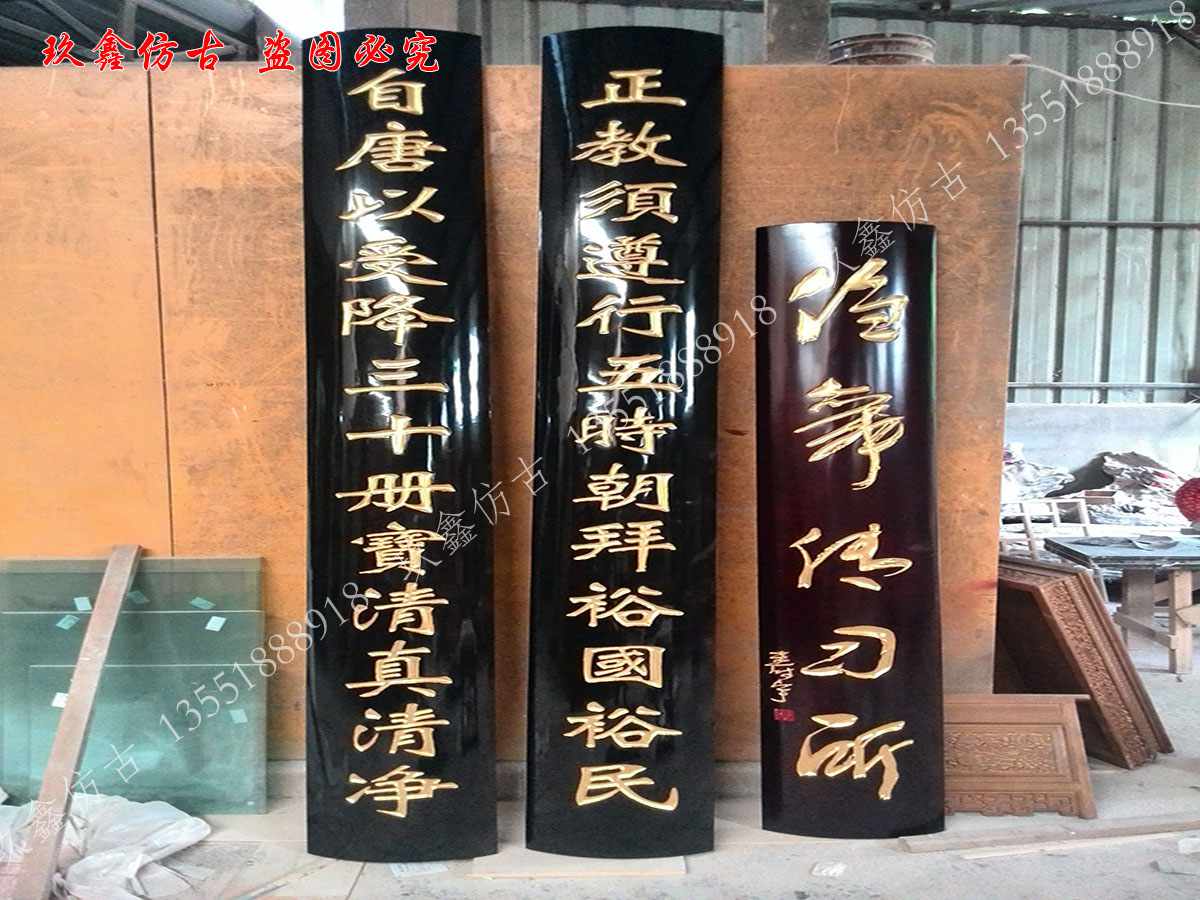 玖鑫仿古 盗图必究
自唐以受降三十册寶清真清净
正教須遵行五時朝拜裕國裕民
传习所
玖鑫仿古 13551888918
玖鑫仿古 13551888918
玖鑫仿古 13551888918
玖鑫仿古 13551888918